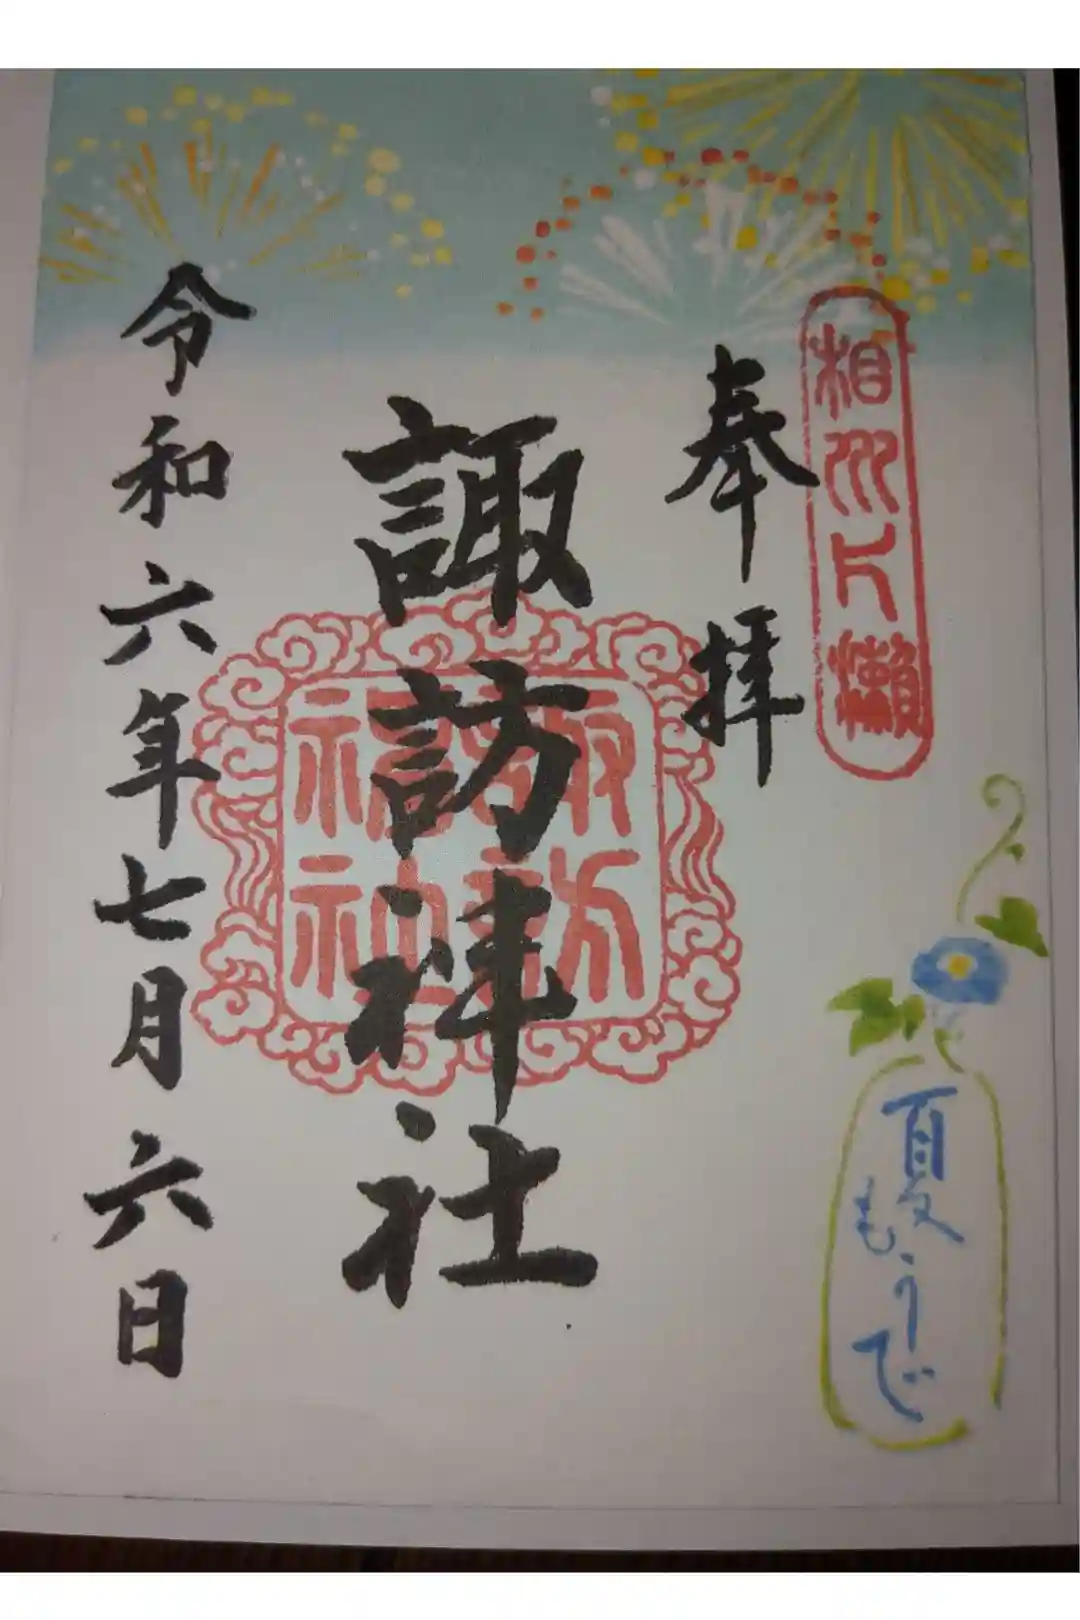 相州片瀬
奉拝
夏もうで
諏訪神社
令和六年七月六日